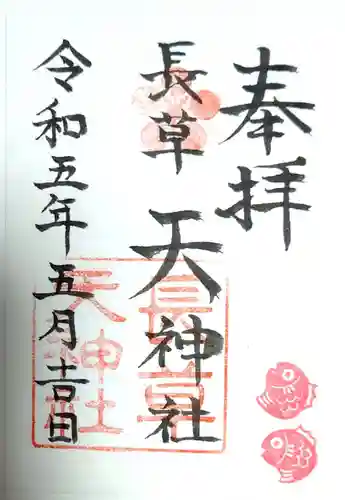 奉拝
長草天神社
令和五年五月吉日
長草天神社